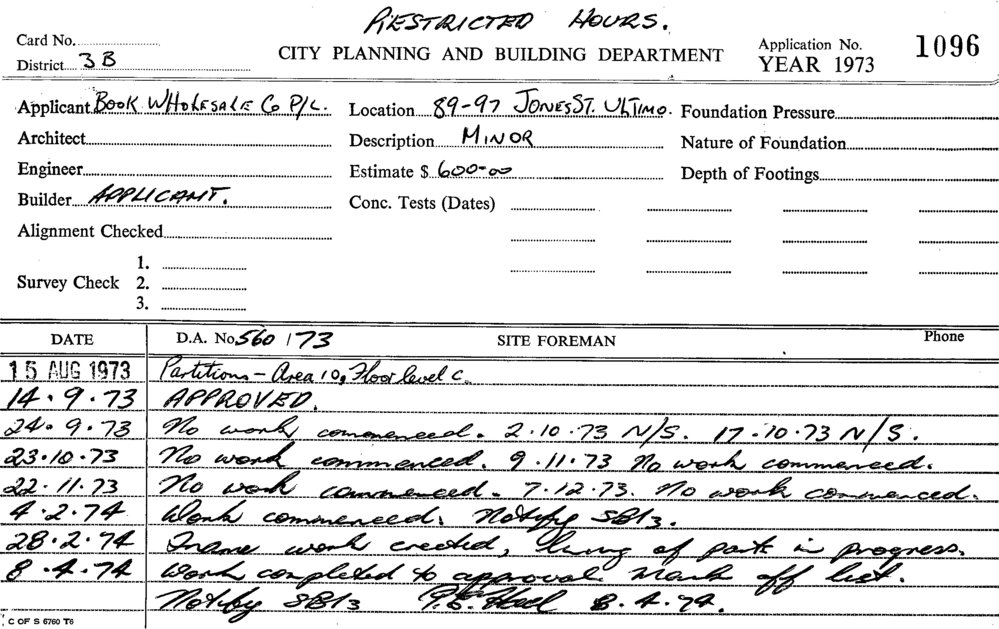 RESTRICTED HOURS.
Card No.
District 3B
CITY PLANNING AND BUILDING DEPARTMENT
Application No. 1096
YEAR 1973
Applicant Book Wholesale Co P/L. Location 89-97 Jones St. Ultimo. Foundation Pressure
Architect Description Minor Nature of Foundation
Engineer Estimate $ 600-00 Depth of Footings
Builder APPLICANT. Conc. Tests (Dates)
Alignment Checked
Survey Check 1.
2.
3.
DATE D.A. No 560/73 SITE FOREMAN Phone
15 AUG 1973 Partitions - Area 10, Floor level C.
14.9.73 APPROVED.
24.9.73 No work commenced. 2.10.73 N/S. 17.10.73 N/S.
23.10.73 No work commenced. 9.11.73 No work commenced.
22.11.73 No work commenced. 7.12.73. No work commenced.
4.2.74 Work commenced. Notify SB13.
28.2.74 Frame work erected, lining of part in progress.
8.4.74 Work completed to approval. Mark off list.
Notify SB13 8.4.74.
C OF S 6760 T6